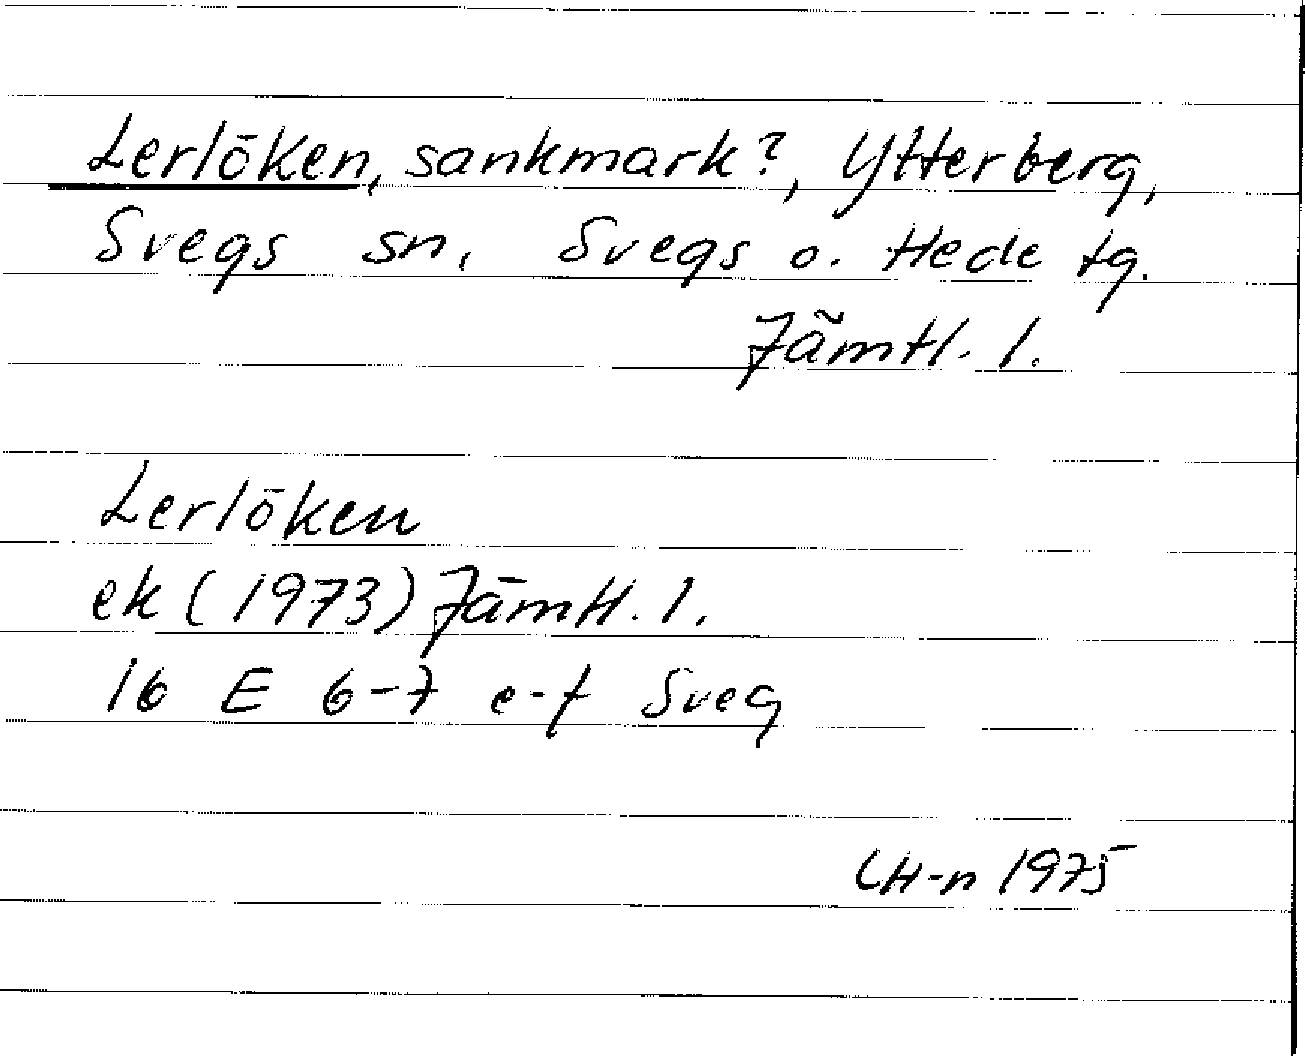 Lerlöken, sankmark?, Ytterberg,
Svegs sn, Svegs o. Hede tg.
Jämtl. l.
Lerlöken
ek (1973) Jämtl. l.
16 E 6-7 e-f Sveg
LH-n 1975